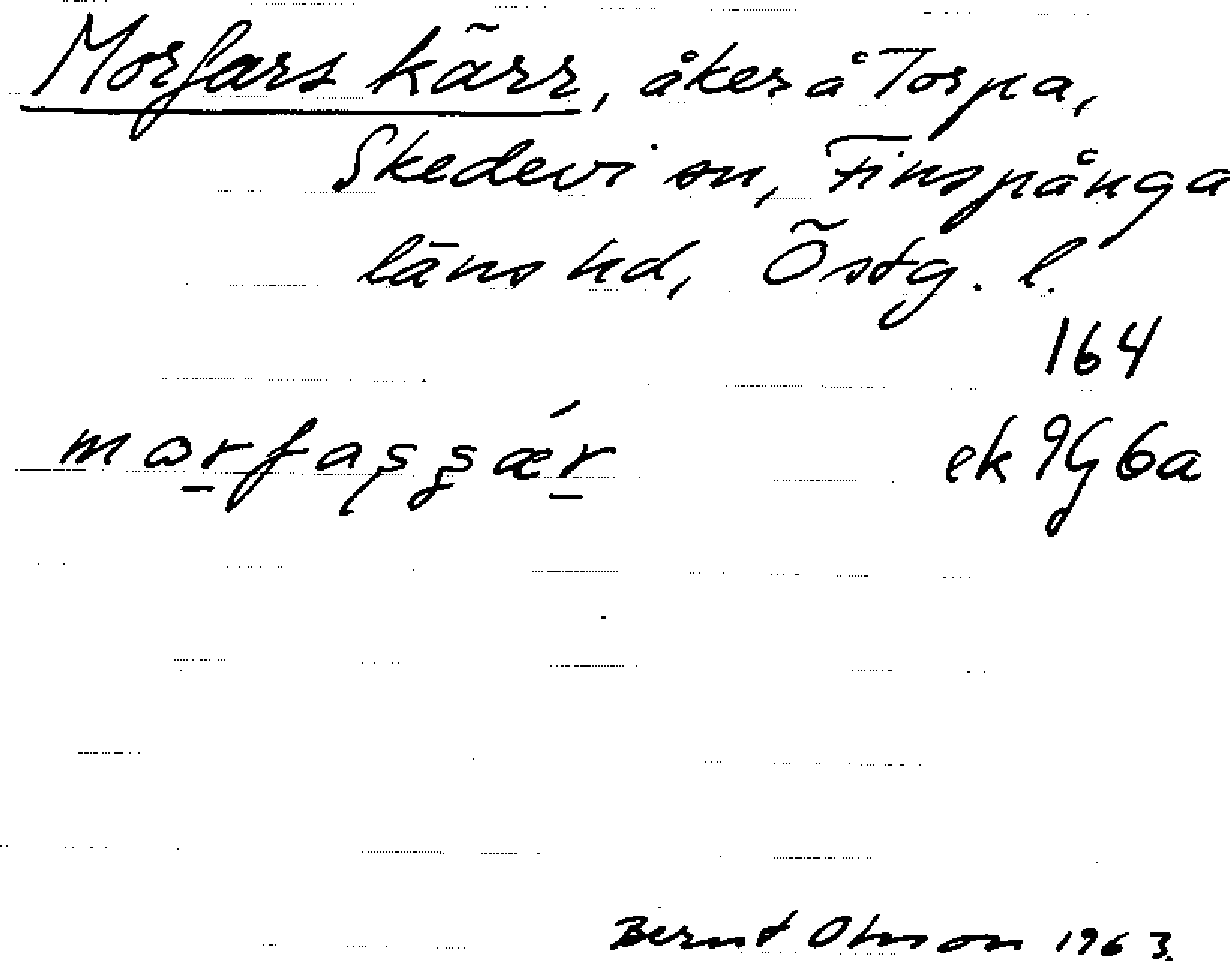 Morfars kärr, åker å Torpa,
Skedevi sn, Finspånga
läns hd, Östg. l.
164
ek 9G 6a
Bernt Olsson 1963.